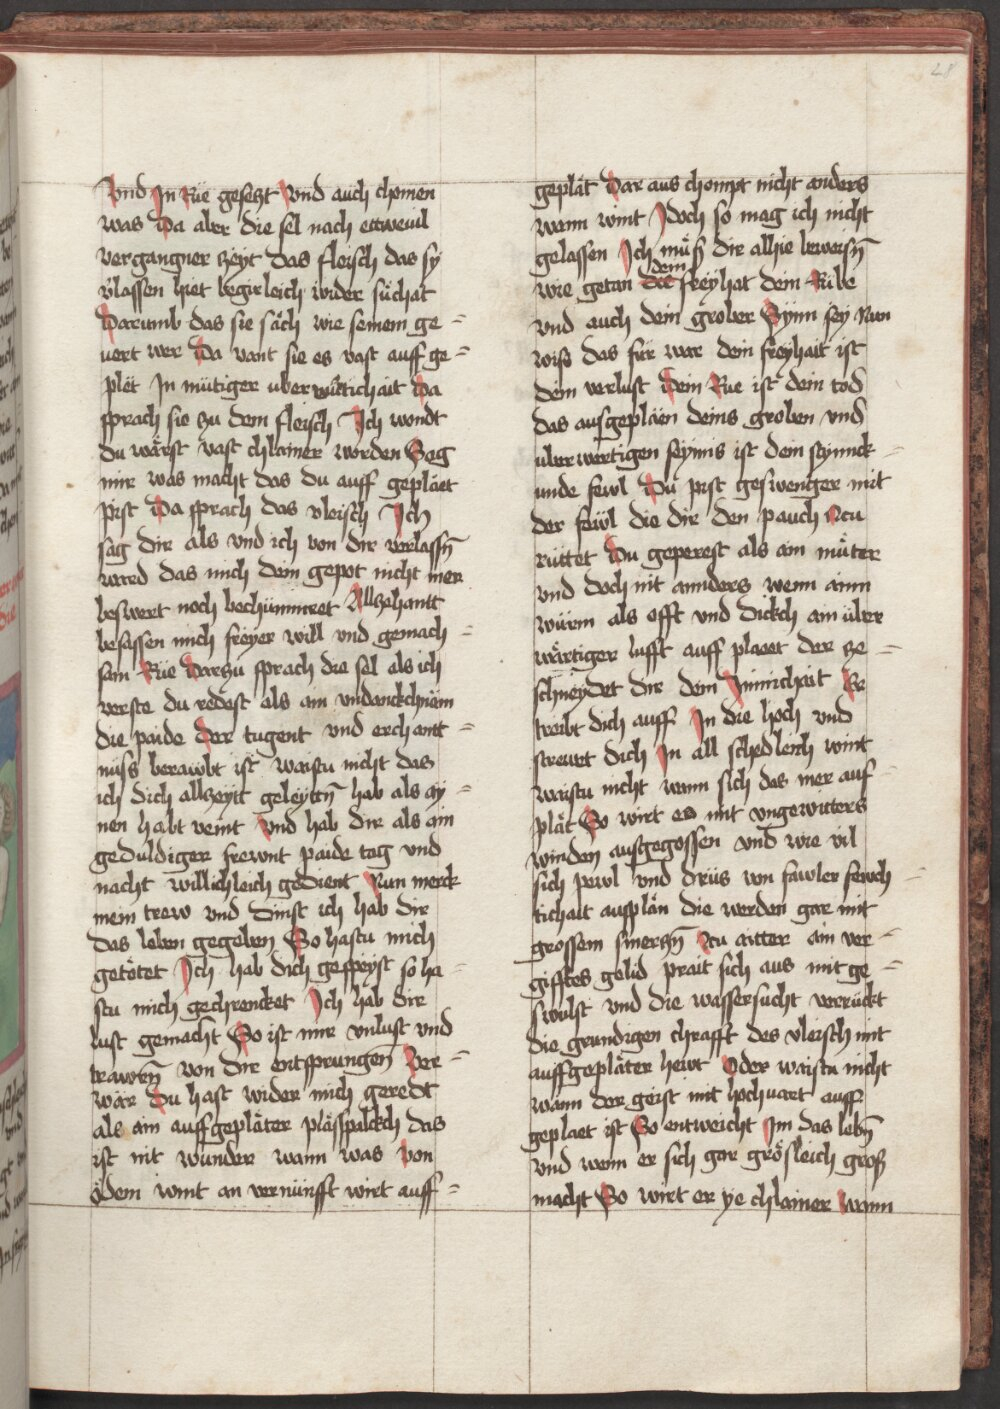 Vnd In Rüe gesetzt Vnd auch chomen
was Da aber die sel nach ettweuil
vergangner zeyt das fleisch das sy
v̈lassen hiet begirleich wider sůchat
Darumb das sie säch wie seinem ge=
uert wer Da vant sie es vast auff ge=
plät In mütiger uberwüttichait Da
sprach sie zu dem fleisch Ich wondt
du wärst vast chlainer worden Seg
mir was macht das du auff geplaet
pist Da sprach das vleisch Ich
sag dir als vnd ich von dir verlassn̄
ward das mich dein gepot nicht mer
beswert noch bechümmert Allzehantt
besassen mich freyer will vnd gemach=
sam Rüe Darzu sprach die sel als ich
verste du redest als ain vndanckchnäm
die paide Der tugent vnd erchantt=
nüss berawbt ist Waistu nicht das
ich dich allzeytt geleyttn̄ hab als ay=
nen halbt veint Vnd hab dir als ain
geduldiger frewnt paide tag vnd
nacht willichleich gedient Nun merck
mein trew vnd dinst ich hab dir
das leben gegeben So hastu mich
getötet Ich hab dich gespeyst so ha=
stu mich gechrencket Ich hab dir
lust gemacht So ist mir vnlust vnd
trawrn̄ von dir entsprungen Ver=
wär Du hast wider mich geredt
als ain auffgepläter pläspalckch das
ist nit wunder wann was von
ödem wint an vernünfft wirt auff=
geplät Dar aus chompt nicht anders
wenn wint Idoch so mag ich nicht
gelassen Ich müß dir alhie beweisn̄
dein
wie getan die freyhat dein Rübe
vnd auch dein grober Synn sey Nun
wiss das für war dein freyhait ist
dein verlust Dein Rue ist dein tod
das aufgepläen deins groben vnd
uberwertigen synnis ist dein stynnck=
unde fewl Du pist geswenger mit
der fewl die dir den pauch Ncu
rüttet Du geperest als ain müter
vnd doch nit annders wenn ainn
würm als offt vnd dickch ain über
wärtiger lufft auff plaeet der ze=
schneydet dir dein Innrichait Ver
treibt dich auff In die hoch vnd
strewet dich In all schedleich wint
waistu nicht wann sich das mer auf
plät So wirt es mit vngewitters
winden ausgegossen vnd wie vil
sich pewl vnd drüs von fawler fewch=
tichait aufplän die werden gar mit
grossem smerczn̄ Ncu aitter ain ver=
gifftes gelid prait sich aus mit ge=
swulst vnd die wassersucht verrückt
die grundigen chrafft des vleisch mit
auffgepläter hewt Oder waistu nicht
wann der geist mit hochuart auff
geplaet ist So entweicht Im das lebn̄
vnd wenn er sich gar grösleich groß
macht So wirt er ye chlainer wann